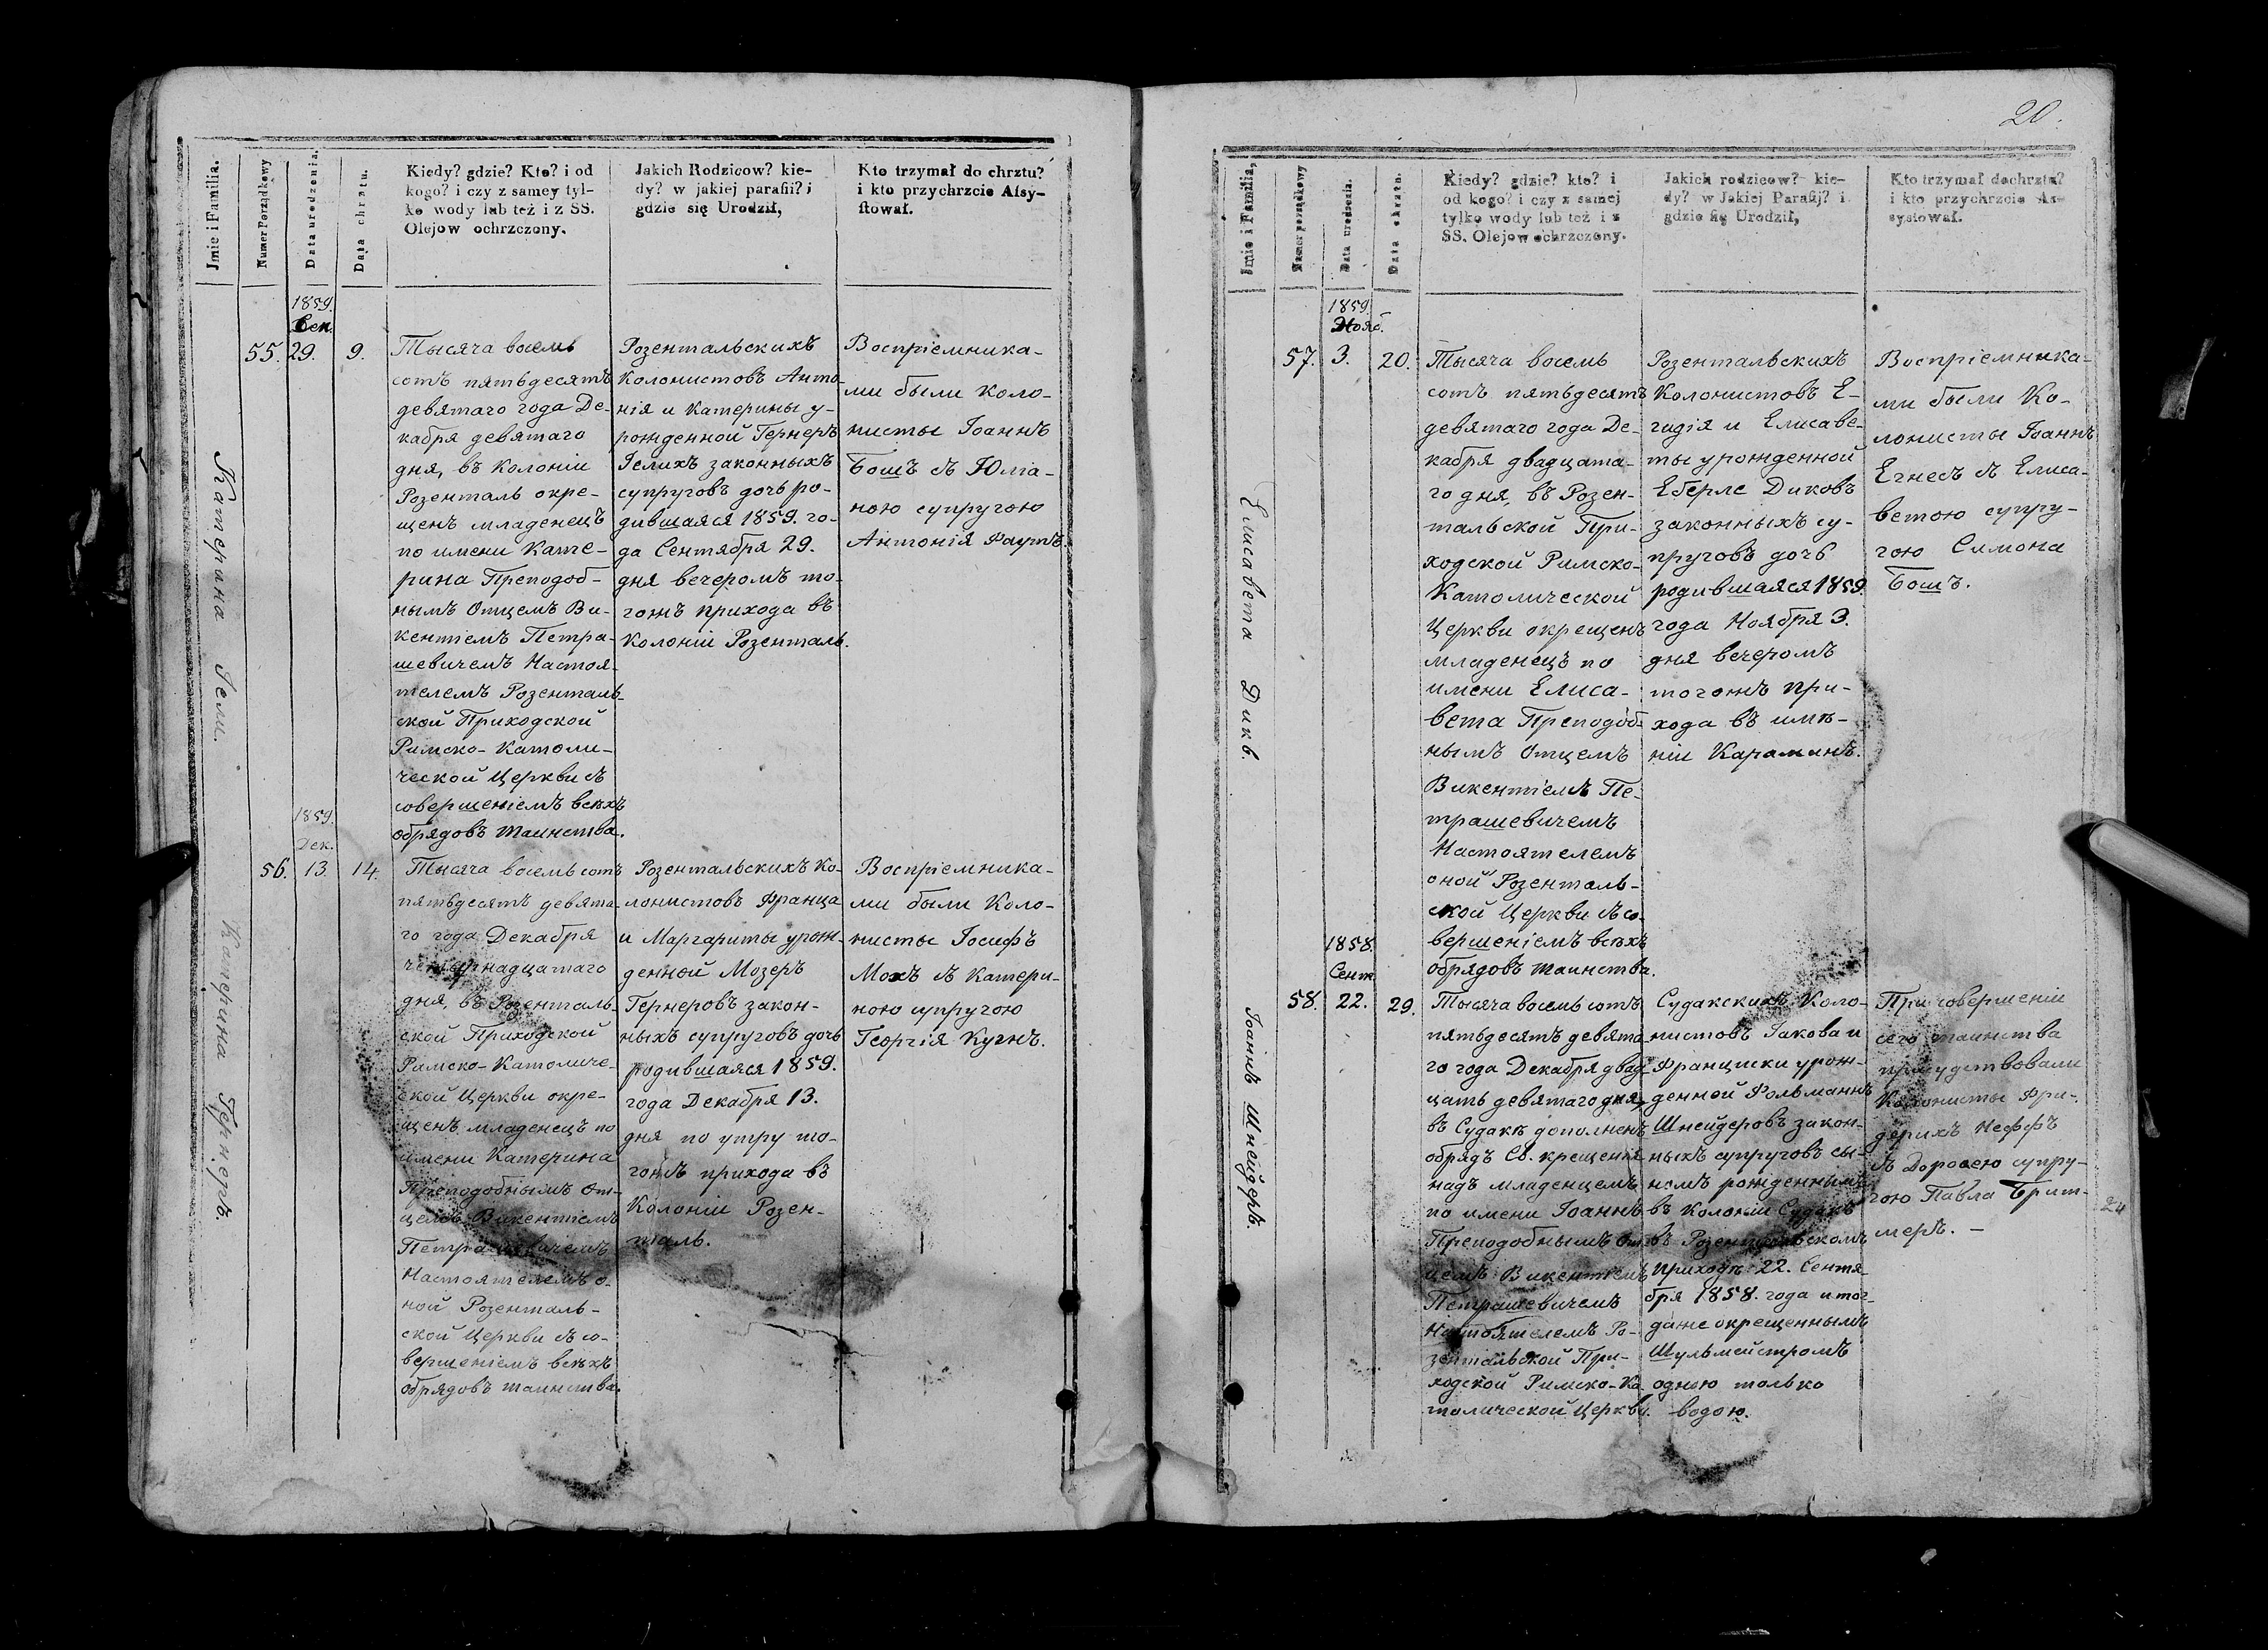 Jmie i Familia.
Numer Porządkowy
Data urodzenia.
Data chrztu.
Kiedy? gdzie? Kto? i od
kogo? i czy z samey tyl-
ko wody lub też i z SS.
Olejow ochrzczony.
Jakich Rodzicow? kie-
dy? w jakiej parafii? i
gdzie się Urodził,
Kto trzymał do chrztu?
i kto przychrzcie Assy-
stował.
Катерина Гели.
1859.
Сен.
55. 29. 9.
Тысяча восемь
сотъ пятьдесятъ
девятаго года Де-
кабря девятаго
дня, въ Колоніи
Розенталь окре-
щенъ младенецъ
по имени Кате-
рина Преподоб-
нымъ Отцемъ Ви-
кентіемъ Петра-
шевичемъ Настоя-
телемъ Розенталь-
ской Приходской
Римско-Католи-
ческой Церкви съ
совершеніемъ всѣхъ
обрядовъ таинства.
Розентальскихъ
Колонистовъ Анто-
нія и Катерины у-
рожденной Гернеръ
Гелихъ законныхъ
супруговъ дочь ро-
дившаяся 1859. го-
да Сентября 29.
дня вечеромъ то-
гожъ прихода въ
Колоніи Розенталь.
Воспріемника-
ми были Коло-
нисты Іоаннъ
Бошъ съ Юліа-
ною супругою
Антонія Фаутъ.
Катерина Гернеръ.
1859.
Дек.
56. 13. 14.
Тысяча восемь сотъ
пятьдесятъ девята-
го года Декабря
четырнадцатаго
дня, въ Розенталь-
ской Приходской
Римско-Католиче-
ской Церкви окре-
щенъ младенецъ по
имени Катерина
Преподобнымъ От-
цемъ Викентіемъ
Петрашевичемъ
Настоятелемъ о-
ной Розенталь-
ской Церкви съ со-
вершеніемъ всѣхъ
обрядовъ таинства.
Розентальскихъ Ко-
лонистовъ Франца
и Маргариты урож-
денной Мозеръ
Гернеровъ закон-
ныхъ супруговъ дочь
родившаяся 1859.
года Декабря 13.
дня по утру то-
гожъ прихода въ
Колоніи Розен-
таль.
Воспріемника-
ми были Коло-
нисты Іосифъ
Мохъ съ Катери-
ною супругою
Георгія Кугнъ.
20.
Jmie i Familia,
Numer porządkowy
Data urodzenia.
Data chrztu.
Kiedy? gdzie? kto? i
od kogo? i czy z samej
tylko wody lub też i z
SS. Olejow ochrzczony.
Jakich rodzicow? kie-
dy? w Jakiej Parafij? i
gdzie się Urodził,
Kto trzymał dochrztu?
i kto przychrzcie As-
systował.
Елисавета Дикъ.
1859.
Нояб.
57. 3. 20.
Тысяча восемь
сотъ пятьдесятъ
девятаго года Де-
кабря двадцата-
го дня, въ Розен-
тальской При-
ходской Римско-
Католической
Церкви окрещенъ
младенецъ по
имени Елиса-
вета Преподоб-
нымъ Отцемъ
Викентіемъ Пе-
трашевичемъ
Настоятелемъ
оной Розенталь-
ской Церкви съ со-
вершеніемъ всѣхъ
обрядовъ таинства.
Розентальскихъ
Колонистовъ Е-
гидія и Елисаве-
ты урожденной
Еберле Диковъ
законныхъ су-
пруговъ дочь
родившаяся 1859.
года Ноября 3.
дня вечеромъ
тогожъ при-
хода въ имѣ-
ніи Караминъ.
Воспріемника-
ми были Ко-
лонисты Іоаннъ
Егнесъ съ Елиса-
ветою супру-
гою Симона
Бошъ.
Іоаннъ Шнейдеръ.
1858.
Сент.
58. 22. 29.
Тысяча восемь сотъ
пятьдесятъ девята-
го года Декабря двад-
цать девятаго дня,
въ Судакѣ дополненъ
обрядъ Св. крещенія
надъ младенцемъ
по имени Іоаннъ
Преподобнымъ От-
цемъ Викентіемъ
Петрашевичемъ
Настоятелемъ Ро-
зентальской При-
ходской Римско-Ка-
толической Церкви.
Судакскихъ Коло-
нистовъ Іакова и
Франциски урож-
денной Фольманнъ
Шнейдеровъ закон-
ныхъ супруговъ сы-
номъ рожденнымъ
въ Колоніи Судакъ
въ Розентальскомъ
приходѣ 22. Сентя-
бря 1858. года и тог-
даже окрещеннымъ
Шульмейстромъ
одною только
водою.
При совершеніи
сего таинства
присудствовали
Колонисты Фри-
дерихъ Неффъ
съ Доротею супру-
гою Павла Брит-
меръ. —
24